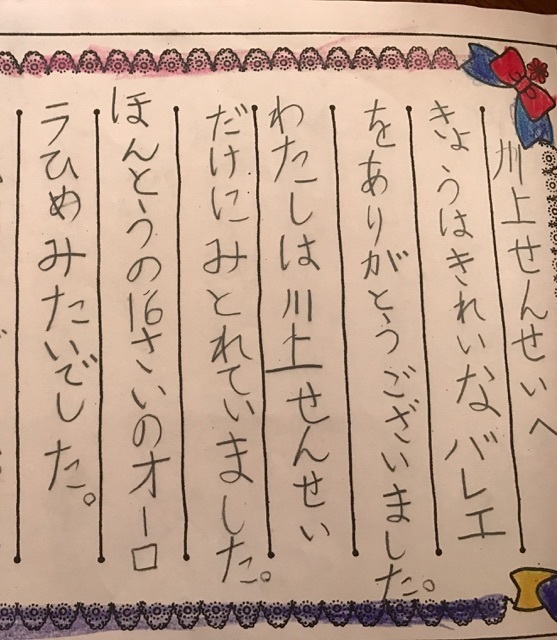 川上せんせいへ
きょうはきれいなバレエ
をありがとうございました。
わたしは川上せんせい
だけにみとれていました。
ほんとうの16さいのオーロ
ラひめみたいでした。